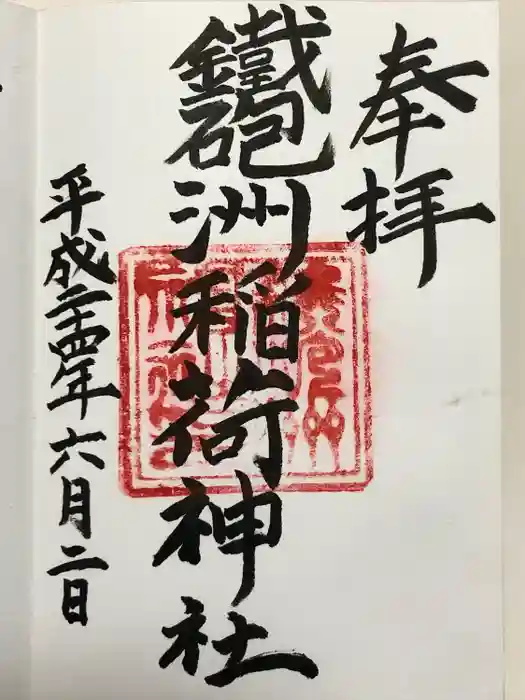 奉拝
鐵砲洲稲荷神社
平成二十四年六月二日